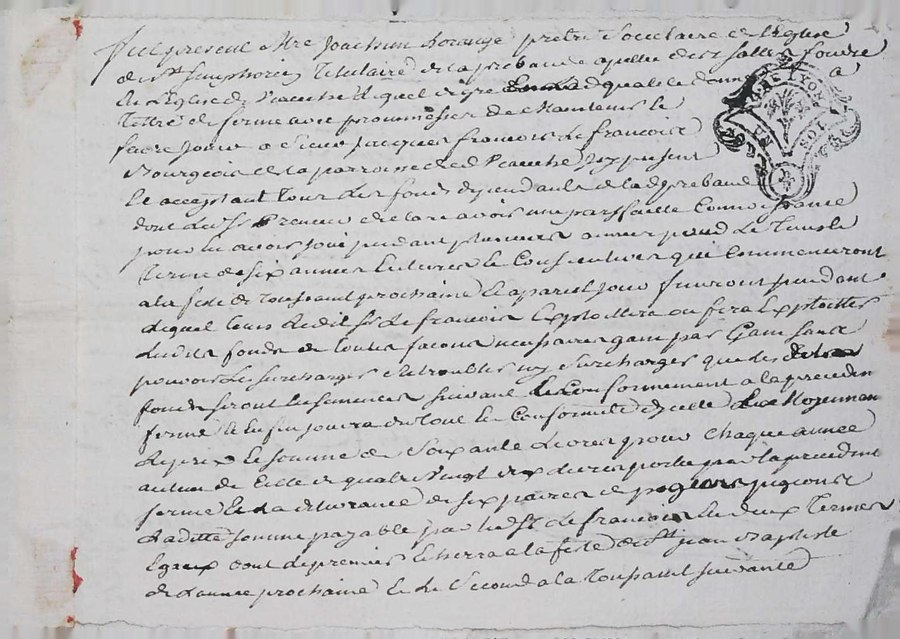 Fut present Mre Joachim pretre Societaire de l'Eglise
de St Simphorien titulaire de la prebande apellee des salles fondee
en l'Eglise de lequel de gre en lad qualite donne a
titre de ferme avec promesse de maintenir le
faire jouir a sieur Jacques francois Lefrancois
Bourgeois de la parroisse dud icy present
et acceptant tous les fonds dependants de lad prebande
dont led Sr Preneur declare avoir une parfaitte Connoissance
pour en avoir joui pendant plusieurs années pour le tems et
terme de six années entieres et Consecutives qui Commenceront
a la feste de Toussaint prochaine et a pareil jour finiront pendant
lequel tems ledit Sr Lefrancois Exploittera ou fera Exploitter
lesdits fonds de touttes facons necessaires gain par Gain sans
pouvoir les surcharger et troubler ny surcharges que lesdits
fonds seront ensemencés suivant et Conformement a la precedente
ferme et enfin jouira du tout en Conformité d'icelle Moyennant
le prix et somme de Soixante Livres pour chaque année
au lieu de celle de quatre vingt dix livres portée par la precedente
ferme et la delivrance de six paires de pigeons
Laditte somme payable par led Sr Lefrancois en deux Termes
Egaux dont le premier Echerra a la feste de St Jean Baptiste
de l'année prochaine et le Second a la Toussaint suivante